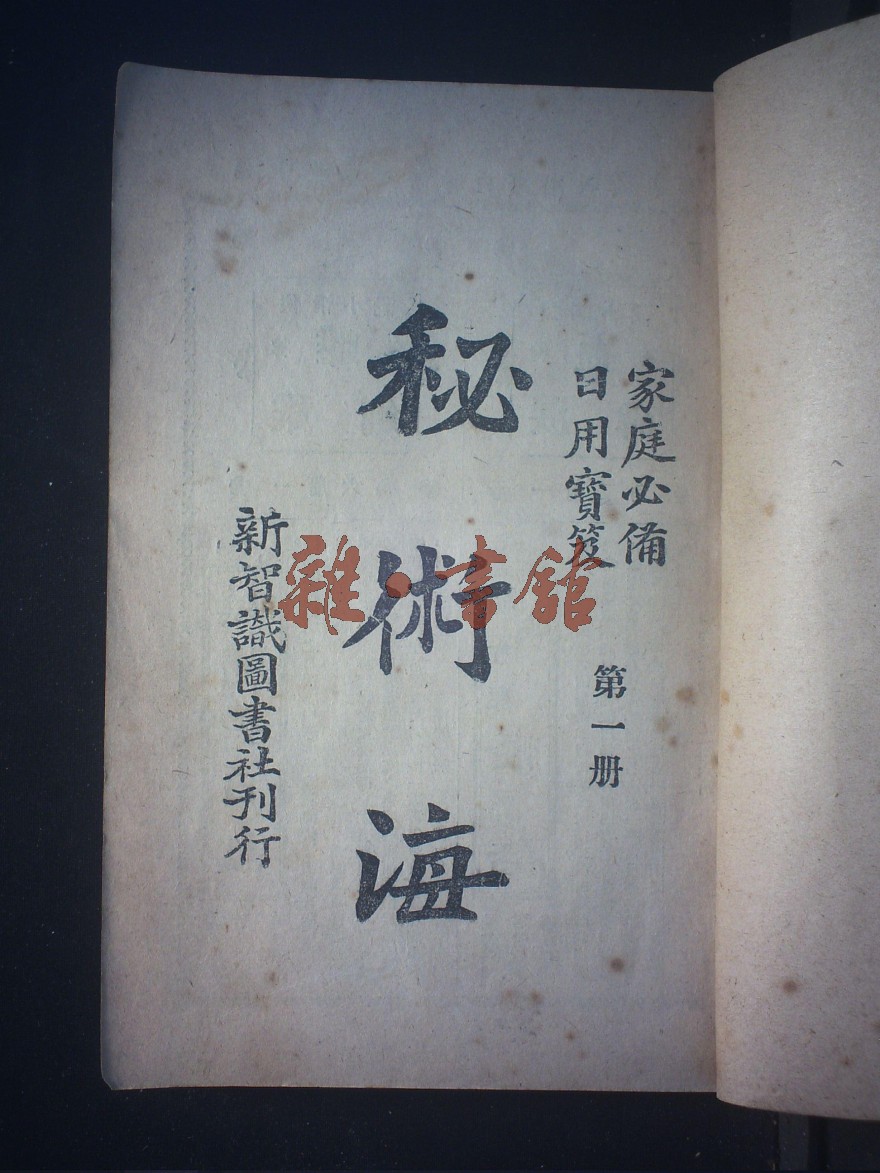 家庭必備
日用寶笈
第一册
秘術海
新智識圖書社刊行
雜·書館